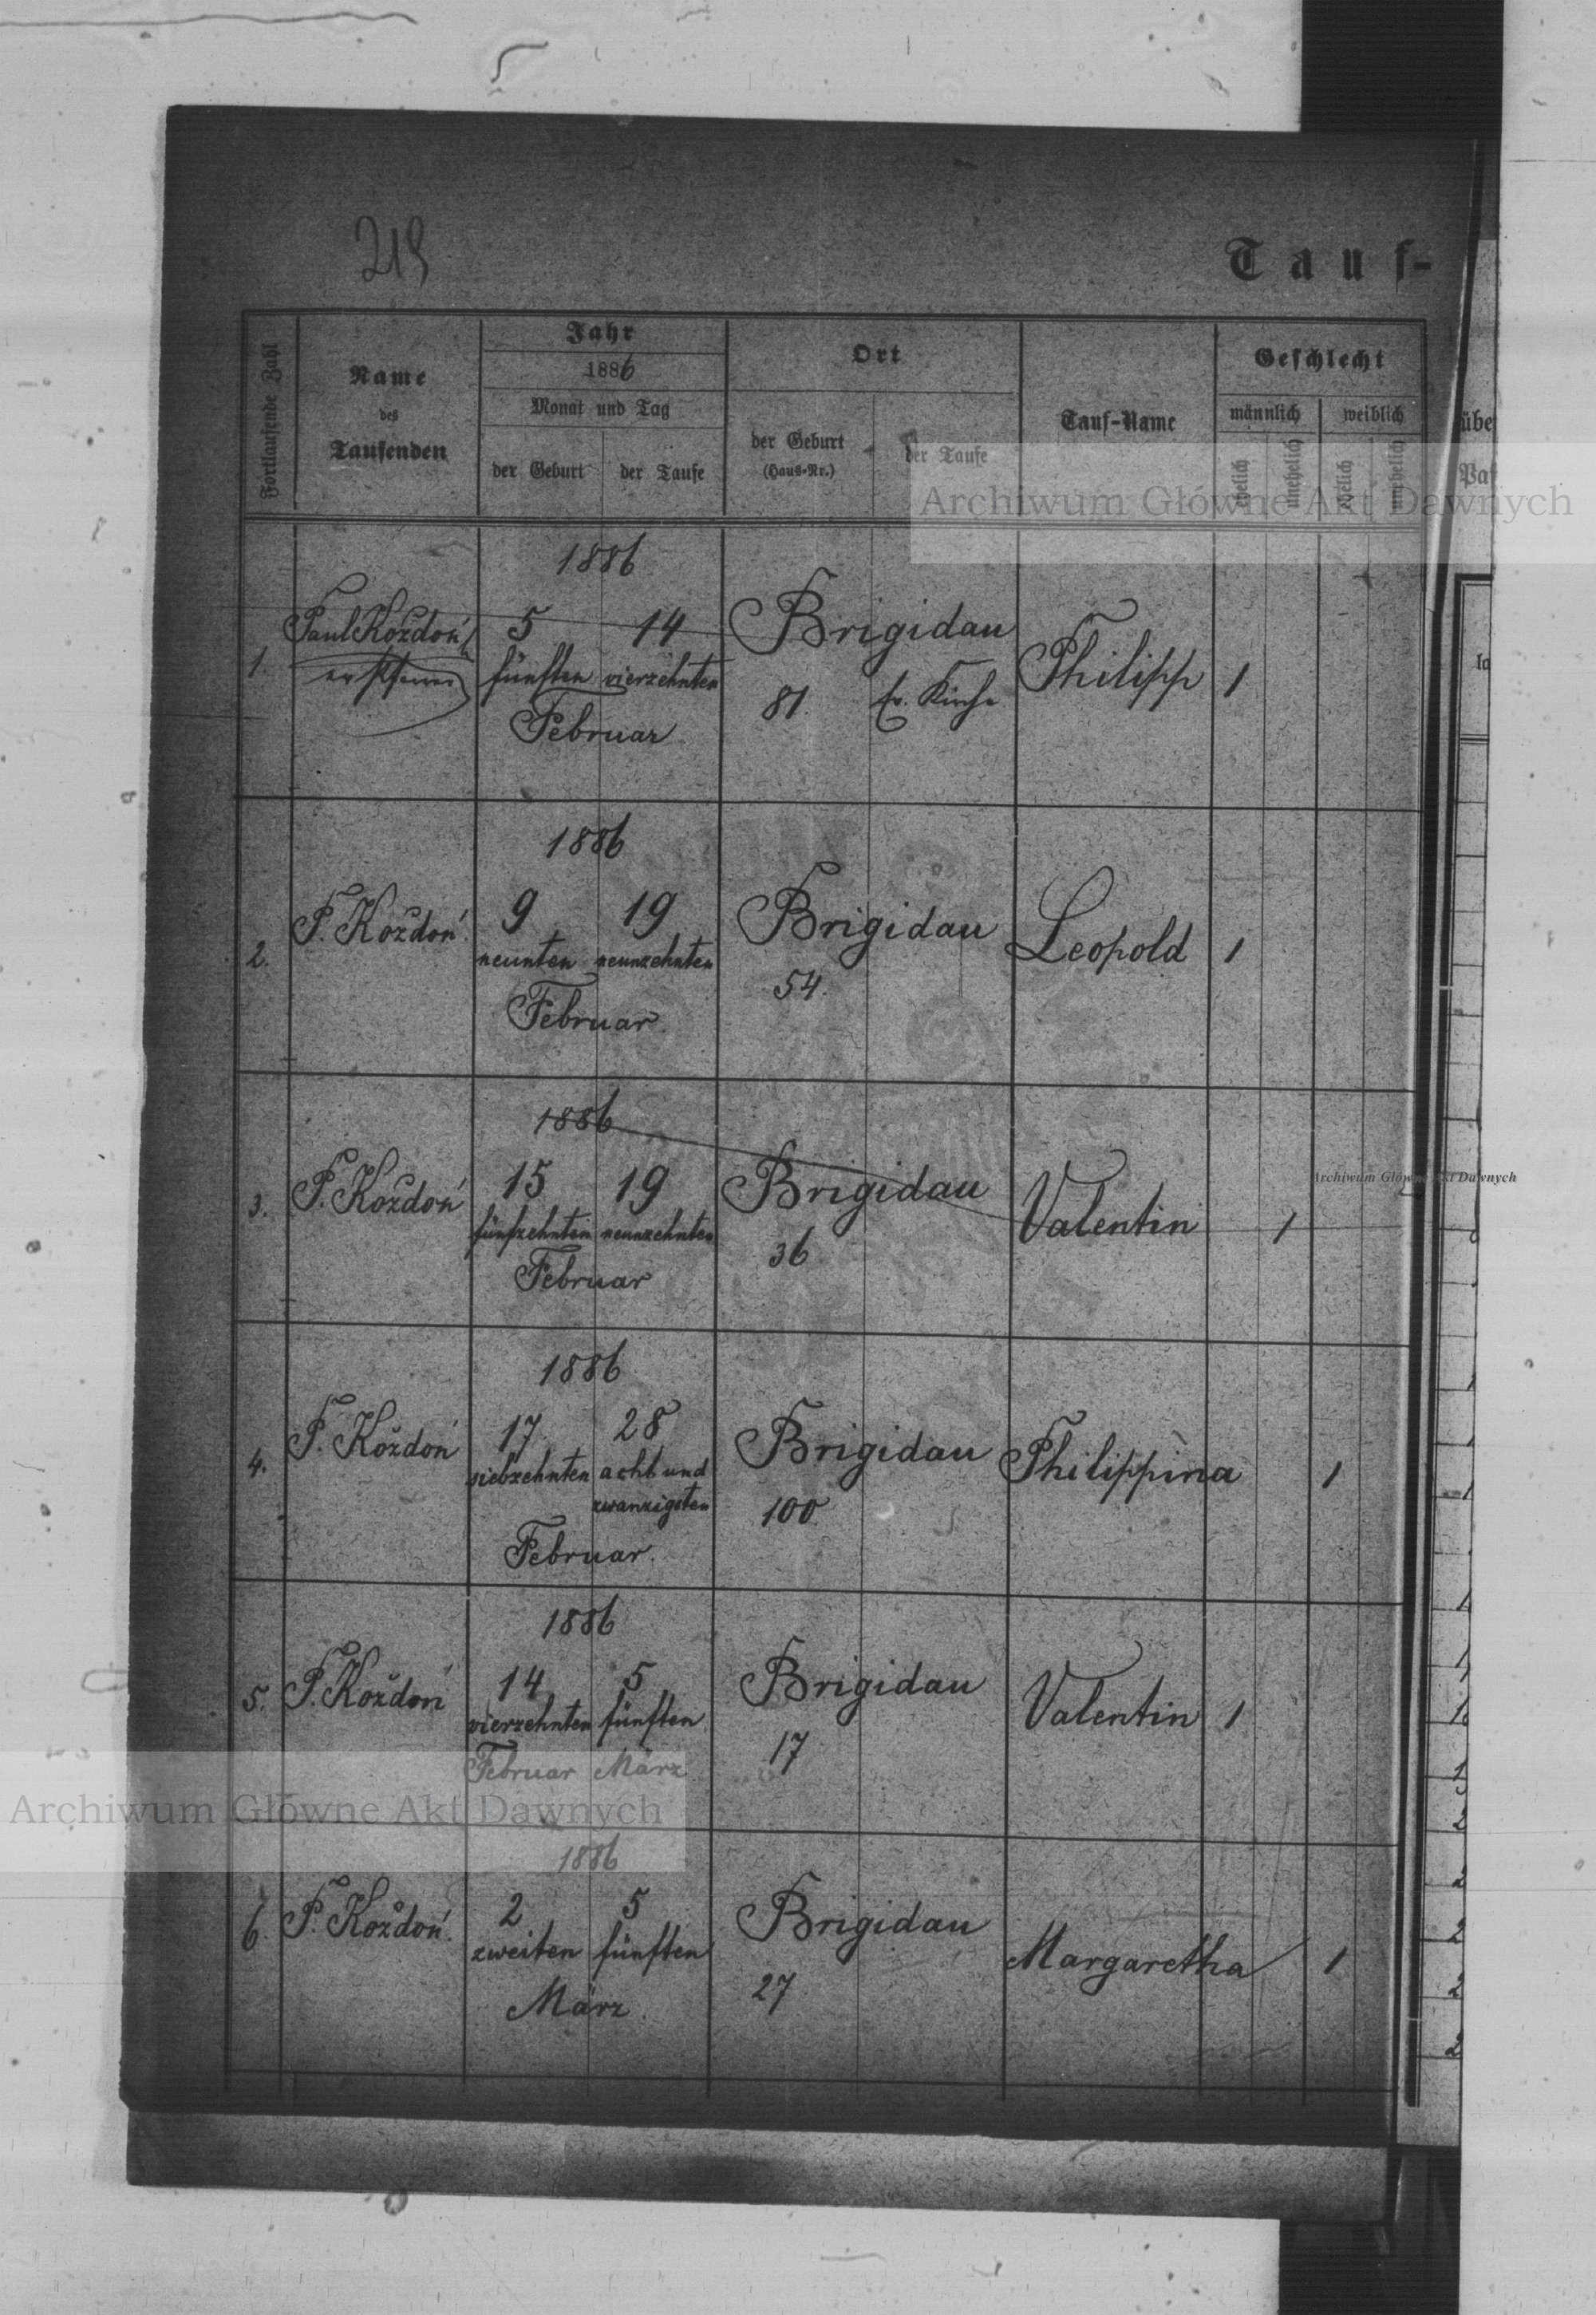 219
Tauf-
Fortlaufende Zahl
Name
des
Taufenden
Jahr
1886
Monat und Tag
der Geburt
der Taufe
Ort
der Geburt
(Haus-Nr.)
der Taufe
Tauf-Name
Geschlecht
männlich
weiblich
ehelich
unehelich
ehelich
unehelich
übe
Pat
Archiwum Główne Akt Dawnych
1886
1.
Paul Koždoń
ev. Pfarrer
5 14
fünften vierzehnten
Februar
Brigidau
81. ev. Kirche
Philipp
1
1886
2.
P. Koždoń
9 19
neunten neunzehnten
Februar
Brigidau
54.
Leopold
1
1886
3.
P. Koždoń
15 19
fünfzehnten neunzehnten
Februar
Brigidau
36
Valentin
1
Archiwum Główne Akt Dawnych
1886
4.
P. Koždoń
17. 28
siebzehnten acht und
zwanzigsten
Februar.
Brigidau
100
Philippina
1
1886
5.
P. Koždoń
14 5
vierzehnten fünften
Februar März
Brigidau
17
Valentin
1
Archiwum Główne Akt Dawnych
1886
6.
P. Koždoń.
2 5
zweiten fünften
März.
Brigidau
27
Margaretha
1